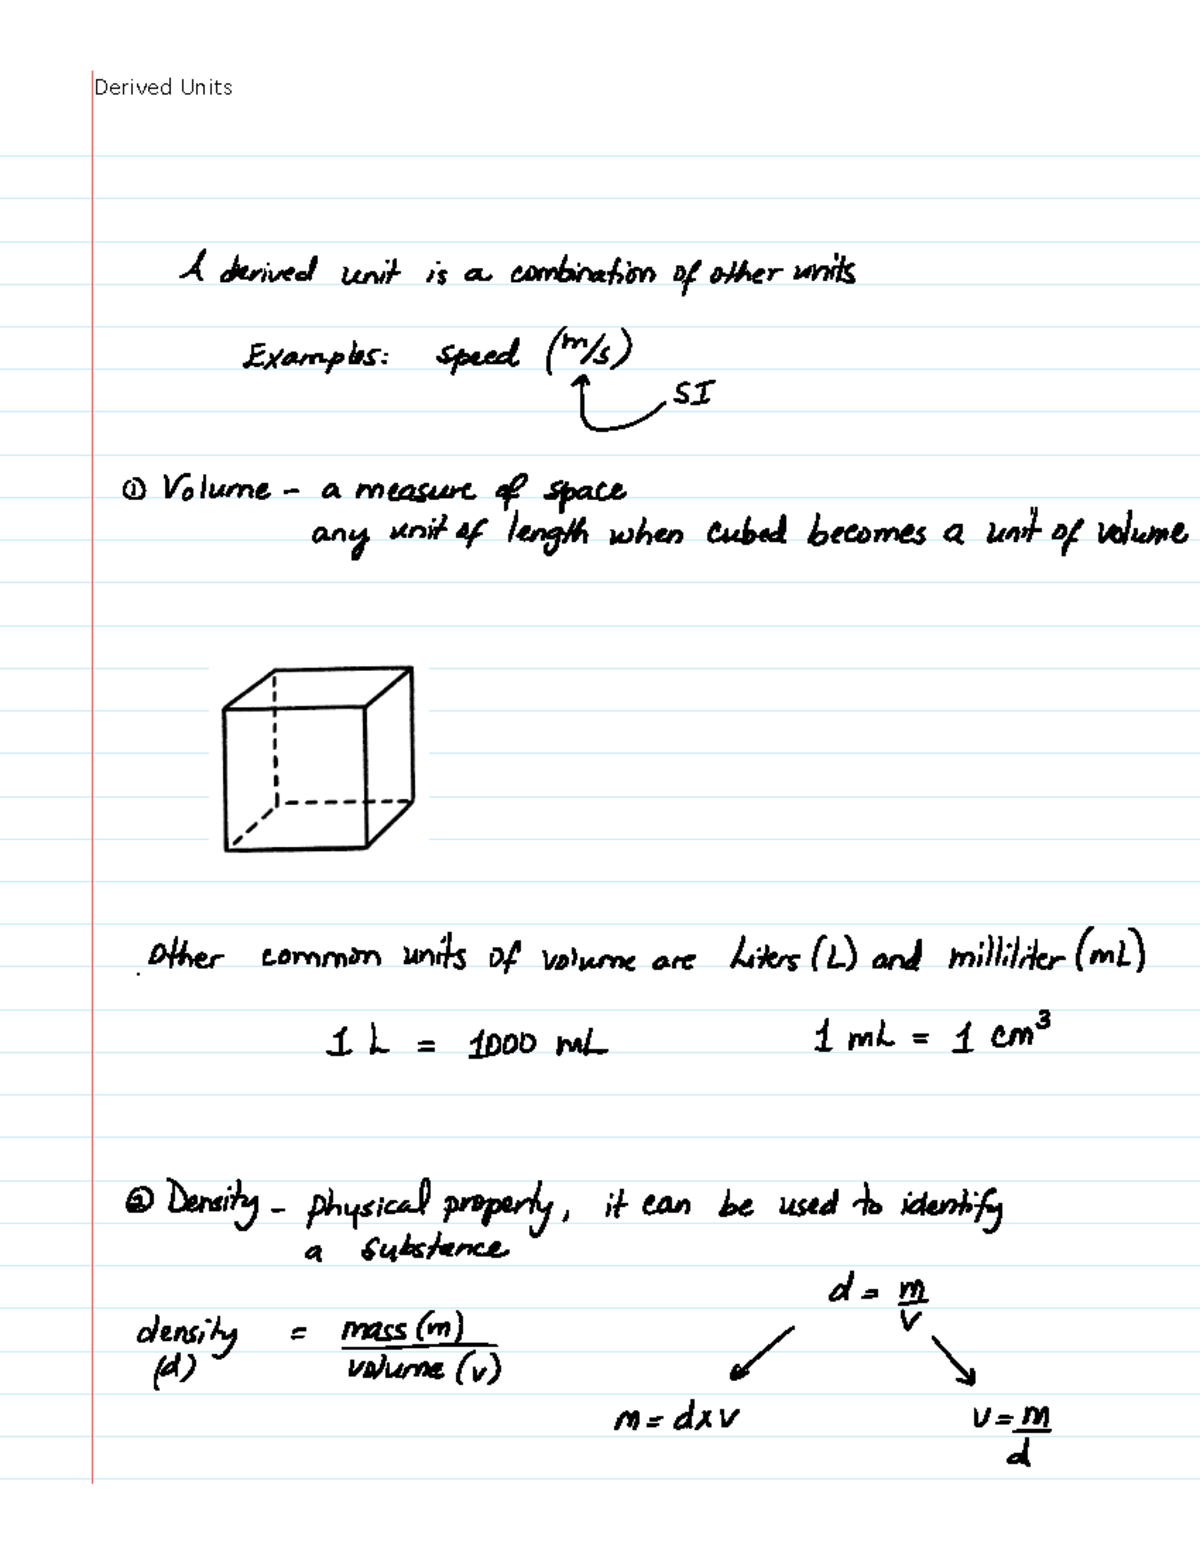 Derived Units
A derived unit is a combination of other units
Examples: speed (m/s)
SI
① Volume - a measure of space
any unit of length when cubed becomes a unit of volume
Other common units of volume are Liters (L) and milliliter (mL)
1 L = 1000 mL 1 mL = 1 cm³
② Density - physical property, it can be used to identify
a substance
d = m/v
density (d) = mass (m) / volume (v)
m = d x v
v = m/d